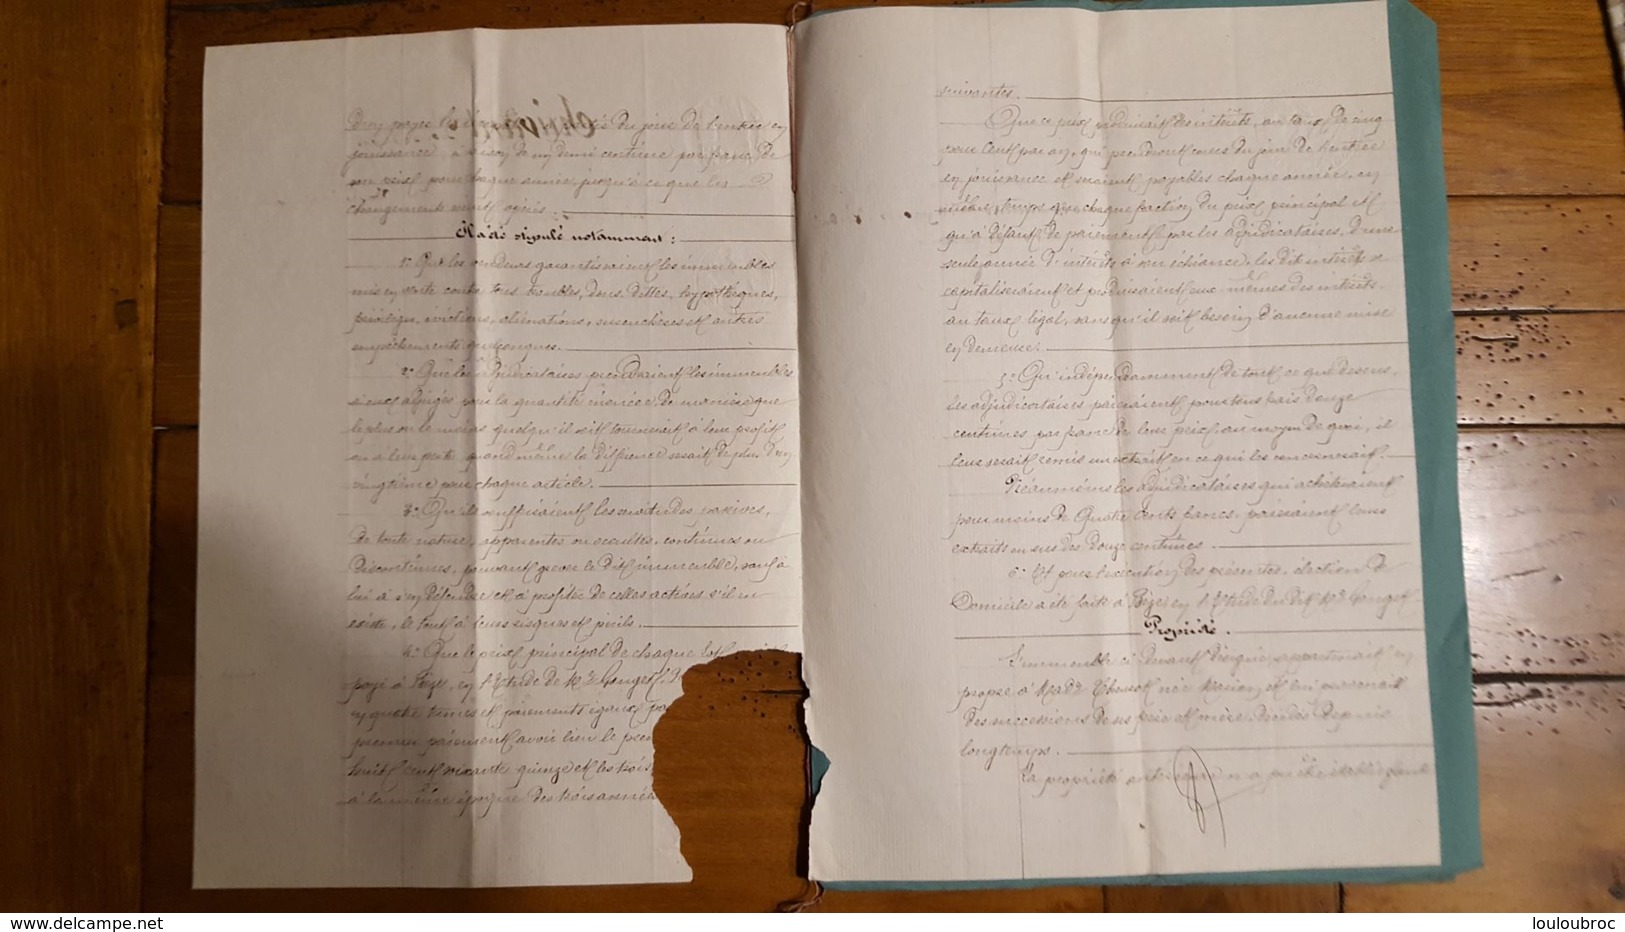 jouissance, à raison de un demi centime par franc de
son prix pour chaque année, jusqu'à ce que les
changements soient opérés.
Il a été stipulé notamment :
1° Que les vendeurs garantissaient les immeubles
mis en vente contre tous troubles, dons, dettes, hypothèques,
privilèges, évictions, aliénations, surenchères et autres
empêchements quelconques.
2° Que les adjudicataires prendraient les immeubles
à eux adjugés pour la quantité énoncée, de manière que
le plus ou le moins quelqu'il soit tournerait à leur profit
ou à leur perte quand même la différence serait de plus d'un
vingtième pour chaque article.
3° Qu'ils souffriraient les servitudes passives,
de toute nature, apparentes ou occultes, continues ou
discontinues, pouvant grever le dit immeuble, sauf à
lui à s'en défendre et à profiter de celles actives s'il en
existe, le tout à leurs risques et périls.
4° Que le prix principal de chaque lot
payé à Bèze, en l'Etude de Me Gouget
en quatre termes et paiements égaux
premier paiement avoir lieu le
huit cent soixante quinze et les trois
à la même époque des trois années
suivantes.
Que ce prix produirait des intérêts, au taux de cinq
pour cent par an, qui prendront cours du jour de l'entrée
en jouissance et seraient payables chaque année, en
même temps que chaque fraction du prix principal et
qu'à défaut de paiement par les adjudicataires, d'une
seule année d'intérêts à son échéance, les dits intérêts se
capitaliseraient et produiraient eux-mêmes des intérêts
au taux légal, sans qu'il soit besoin d'aucune mise
en demeure.
5° Qu'indépendamment de tout ce que dessus,
les adjudicataires paieraient pour tous frais douze
centimes par franc de leur prix au moyen de quoi, il
leur serait remis un extrait en ce qui les concernerait.
Néanmoins les adjudicataires qui achèteraient
pour moins de quatre cents francs, paieraient leurs
extraits en sus des douze centimes.
6° Et pour l'exécution des présentes, élection de
domicile a été faite à Bèze, en l'Etude du dit Me Gouget.
Propriété.
L'immeuble ci-devant désigné, appartenait en
propre à Made née et lui provenait
des successions de ses père et mère, décédés depuis
longtemps.
La propriété antérieure n'a pu être établie
louloubroc
www.delcampe.net